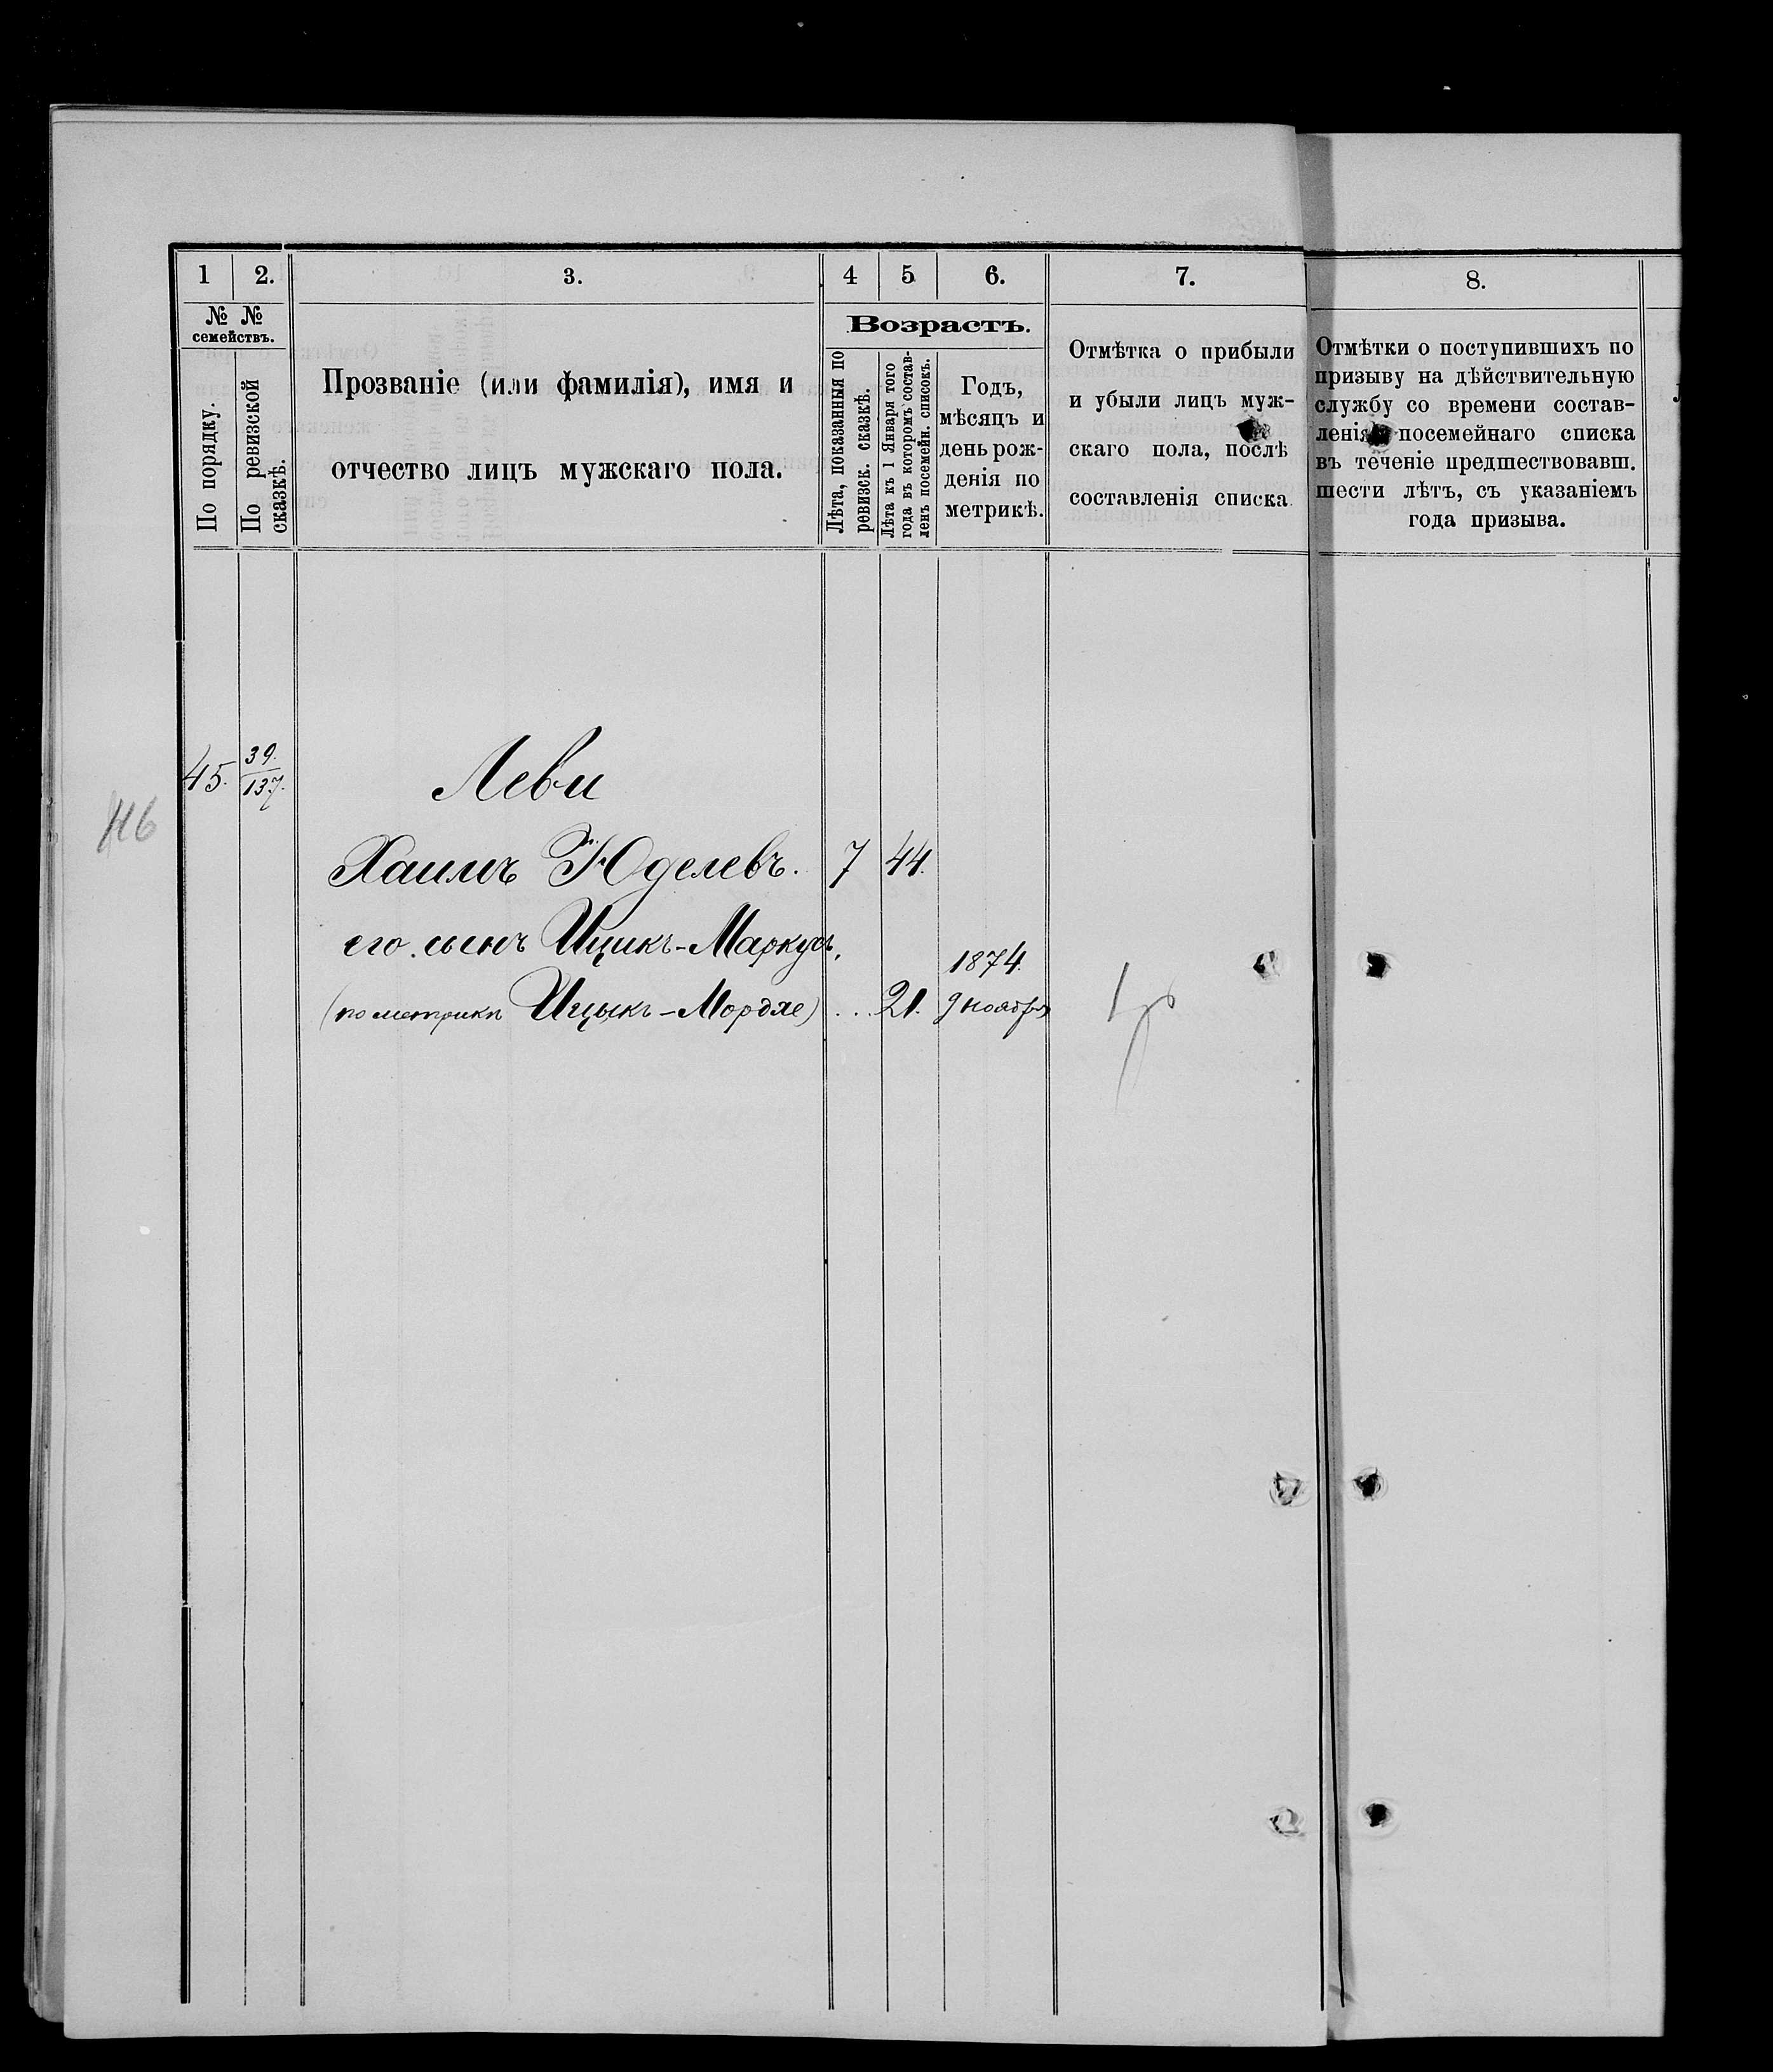 1 2. 3. 4 5 6. 7. 8.
№ №
семействъ.
По порядку.
По ревизской
сказкѣ.
Прозваніе (или фамилія), имя и
отчество лицъ мужскаго пола.
Возрастъ.
Лѣта, показанныя по
ревизск. сказкѣ.
Лѣта къ 1 Января того
года въ которомъ состав-
ленъ посемейн. списокъ.
Годъ,
мѣсяцъ и
день рож-
денія по
метрикѣ.
Отмѣтка о прибыли
и убыли лицъ муж-
скаго пола, послѣ
составленія списка
Отмѣтки о поступившихъ по
призыву на дѣйствительную
службу со времени состав-
ленія посемейнаго списка
въ теченіе предшествовавш.
шести лѣтъ, съ указаніемъ
года призыва.
45. 39./137. Леви
Хаимъ Юделевъ. 7 44.
его сынъ Ицикъ-Маркусъ,
1874.
(по метрикѣ Ицыкъ-Мордхе) ... 21. 9 ноября